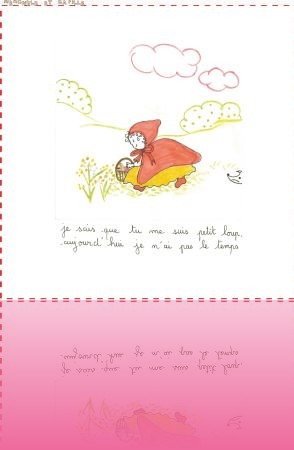 je sais que tu me suis petit loup,
aujourd'hui je n'ai pas le temps